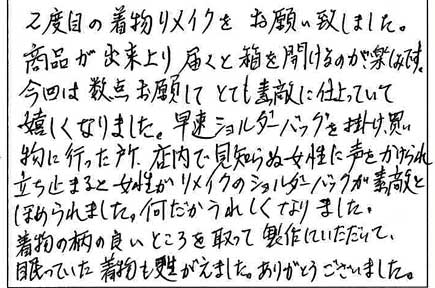 2度目の着物リメイクを お願い致しました。
商品が出来上り 届くと箱を開けるのが楽しみです。
今回は数点お願して とても素敵に仕上っていて
嬉しくなりました。早速ショルダーバッグを掛け、買い
物に行った所、店内で見知らぬ女性に声をかけられ
立ち止まると女性がリメイクのショルダーバッグが素敵と
ほめられました。何だかうれしくなりました。
着物の柄の良いところを取って 製作していただいて、
眠っていた着物も甦がえました。ありがとうございました。